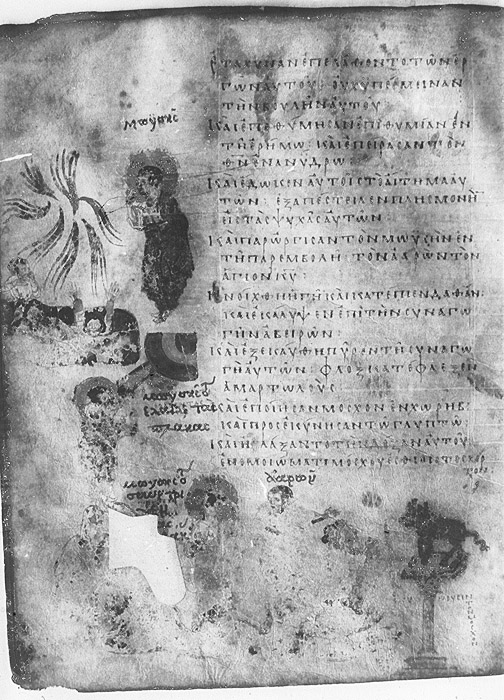 Μωυσης
ΕΤΑΧΥΝΑΝ ΕΠΕΛΑΘΟΝΤΟ ΤΩΝ ΕΡ
ΓΩΝ ΑΥΤΟΥ· ΟΥΧ ΥΠΕΜΕΙΝΑΝ
ΤΗΝ ΒΟΥΛΗΝ ΑΥΤΟΥ
ΚΑΙ ΕΠΕΘΥΜΗΣΑΝ ΕΠΙΘΥΜΙΑΝ ΕΝ
ΤΗ ΕΡΗΜΩ· ΚΑΙ ΕΠΕΙΡΑΣΑΝ ΤΟΝ
ΘΝ ΕΝ ΑΝΥΔΡΩ:
ΚΑΙ ΕΔΩΚΕΝ ΑΥΤΟΙΣ ΤΟ ΑΙΤΗΜΑ ΑΥ
ΤΩΝ· ΕΞΑΠΕΣΤΕΙΛΕΝ ΠΛΗΣΜΟΝΗΝ
ΕΙΣ ΤΑΣ ΨΥΧΑΣ ΑΥΤΩΝ
ΚΑΙ ΠΑΡΩΡΓΙΣΑΝ ΤΟΝ ΜΩΥΣΗΝ ΕΝ
ΤΗ ΠΑΡΕΜΒΟΛΗ· ΤΟΝ ΑΑΡΩΝ ΤΟΝ
ΑΓΙΟΝ ΚΥ:
ΗΝΟΙΧΘΗ Η ΓΗ ΚΑΙ ΚΑΤΕΠΙΕΝ ΔΑΘΑΝ:
ΚΑΙ ΕΚΑΛΥΨΕΝ ΕΠΙ ΤΗΝ ΣΥΝΑΓΩ
ΓΗΝ ΑΒΕΙΡΩΝ:
ΚΑΙ ΕΞΕΚΑΥΘΗ ΠΥΡ ΕΝ ΤΗ ΣΥΝΑΓΩ
ΓΗ ΑΥΤΩΝ· ΦΛΟΞ ΚΑΤΕΦΛΕΞΕΝ
ΑΜΑΡΤΩΛΟΥΣ
ΚΑΙ ΕΠΟΙΗΣΑΝ ΜΟΣΧΟΝ ΕΝ ΧΩΡΗΒ·
ΚΑΙ ΠΡΟΣΕΚΥΝΗΣΑΝ ΤΩ ΓΛΥΠΤΩ
ΚΑΙ ΗΛΛΑΞΑΝΤΟ ΤΗΝ ΔΟΞΑΝ ΑΥΤΟΥ
ΕΝ ΟΜΟΙΩΜΑΤΙ ΜΟΣΧΟΥ ΕΣΘΙΟΝΤΟΣ ΧΟΡ
ΤΟΝ
μωυσης ο
πλακας
μωυσης ο
ααρων